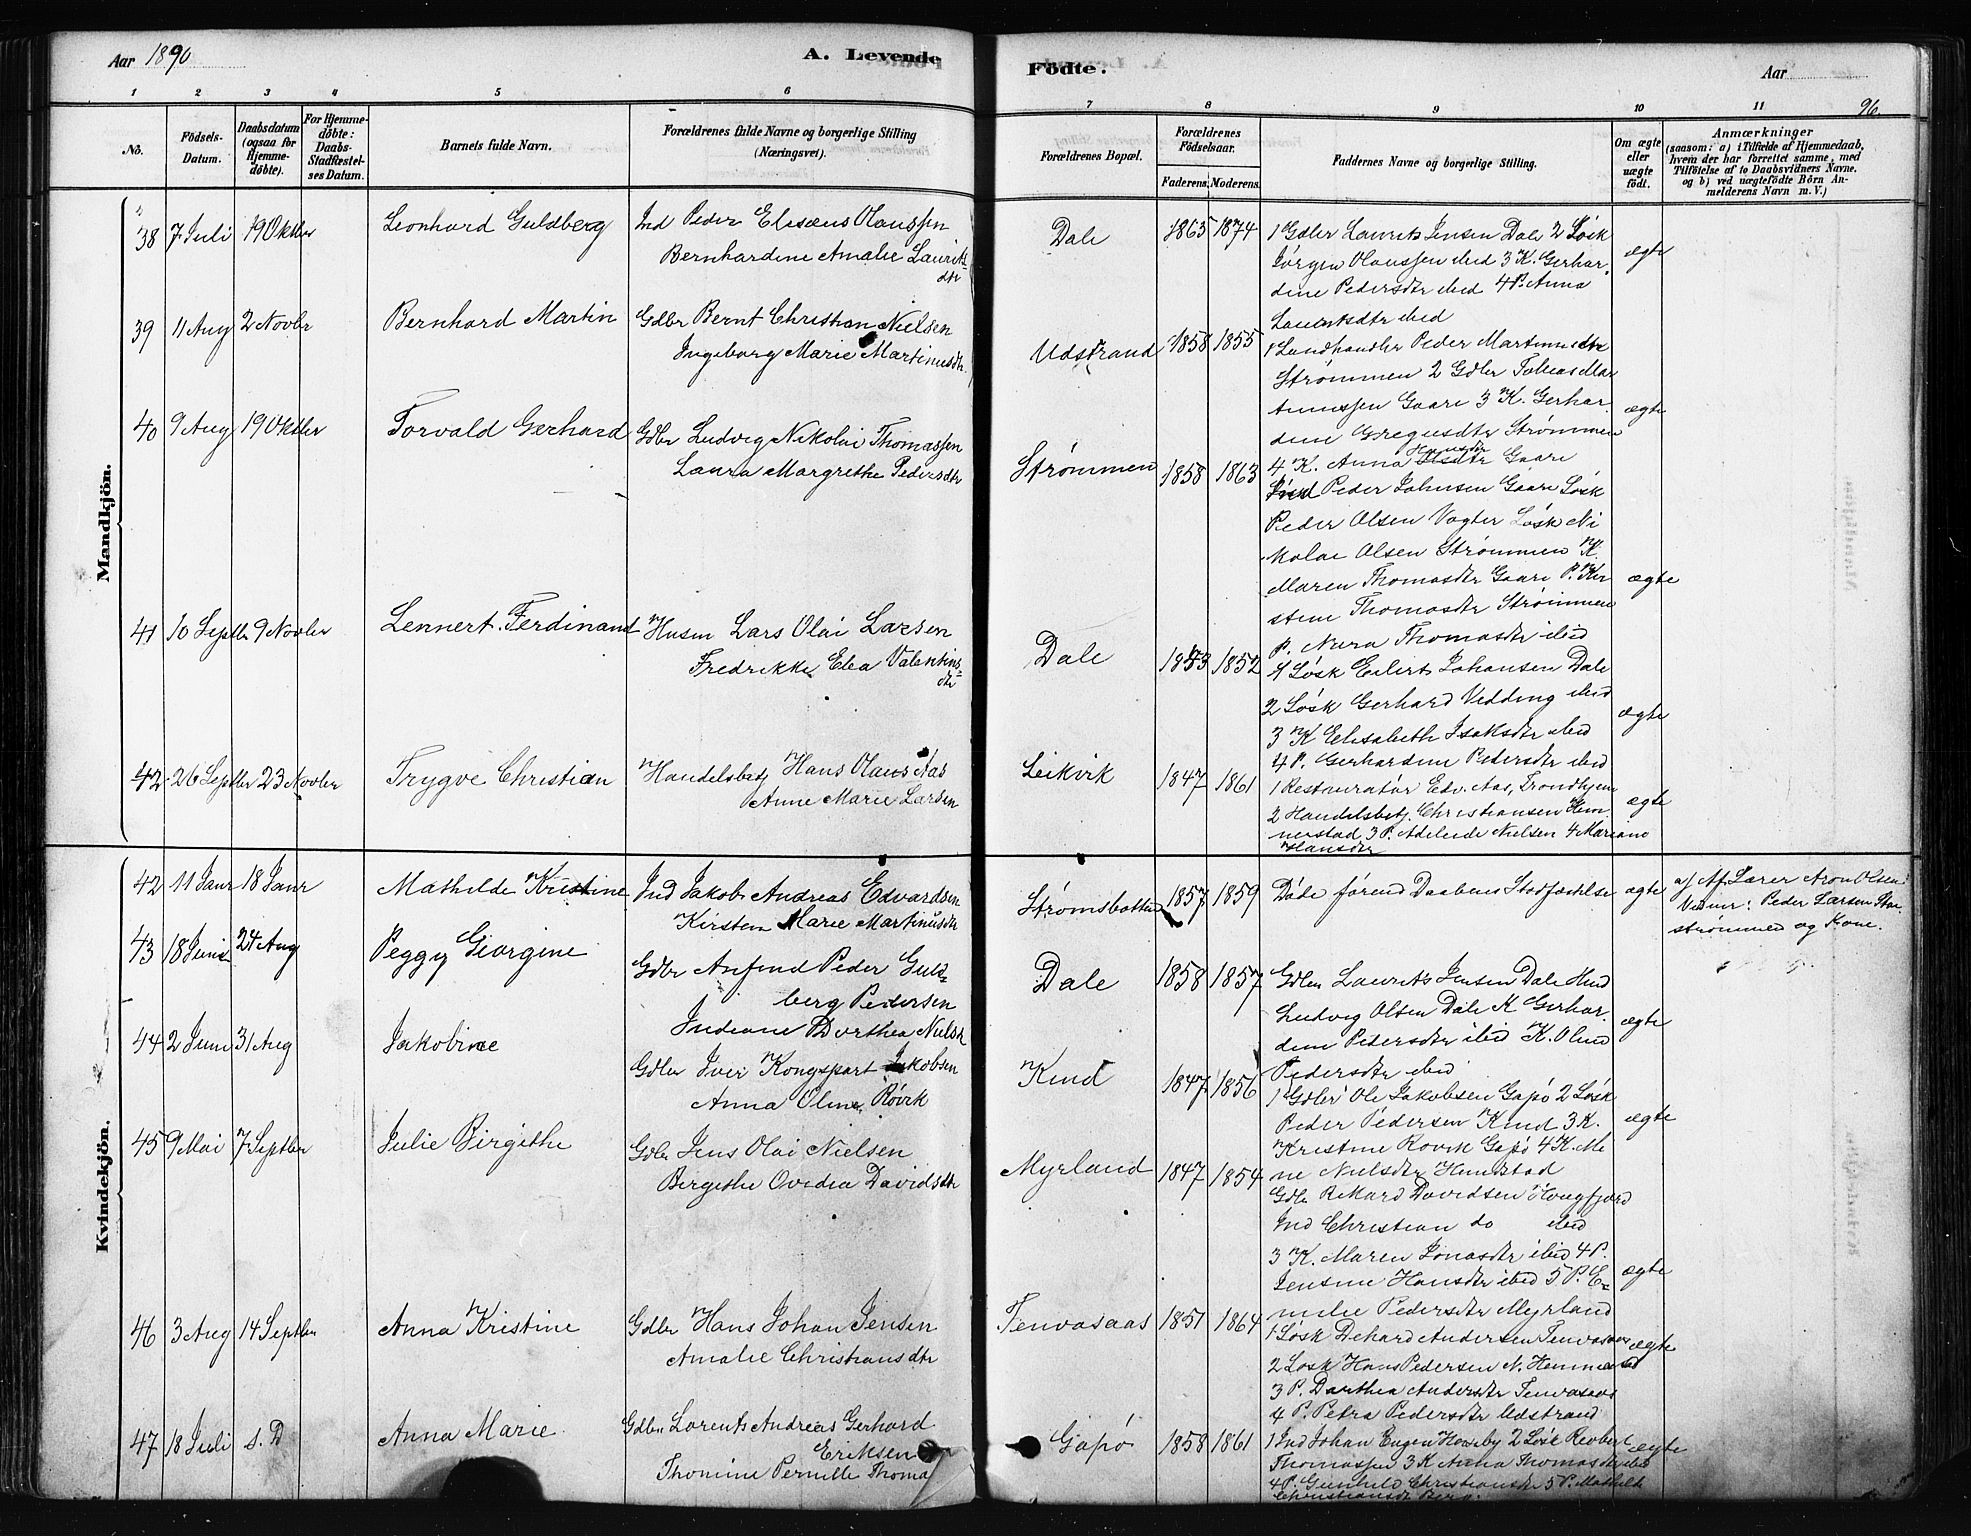 Aar 1890
A. Levende
Födte.
Aar
96.
1 2 3 4 5 6 7 8 9 10 11
No.
Födsels-Datum.
Daabsdatum (ogsaa for Hjemme-döbte).
For Hjemme-döbte: Daabs-Stadfæstel-ses Datum.
Barnets fulde Navn.
Forældrenes fulde Navne og borgerlige Stilling (Næringsvei).
Forældrenes Bopæl.
Forældrenes Födselsaar.
Faderens. Moderens.
Faddernes Navne og borgerlige Stilling.
Om ægte eller uægte födt.
Anmærkninger (saasom: a) i Tilfælde af Hjemmedaab, hvem der har forrettet samme, med Tilföielse af to Daabsvidners Navne. og b) ved uægtefödte Börn An-melderens Navn m. V.)
Mandkjön.
38 7 Juli 19 Oktbr Leonhard Guldberg Ind Peder Eliseus Olaussen
Bernhardine Amalie Laurits-
dtr
Dale 1865 1874
1 Gdbr Laurits Jensen Dale 2 Løsk
Jørgen Olaussen ibid 3 K. Gerhar-
dine Pedersdtr ibid 4 P. Anna
Lauritsdtr ibid
ægte
39 11 Aug 2 Novbr Bernhard Martin Gdbr Bernt Christian Nielsen
Ingeborg Marie Martinusdtr
Udstrand 1858 1855
1 Landhandler Peder
Strømmen 2 Gdbr Tobias Mar
Gaare 3 K. Gerhar
dine Strømmen
4 K. Anna Gaare
ægte
40 9 Aug 19 Oktbr Torvald Gerhard Gdbr Ludvig Nikolai Thomassen
Laura Margrethe Pedersdtr
Strømmen 1858 1863
Peder Johnsen Gaare Løsk
Peder Olsen Vogter Løsk Ni
kolai Olsen Strømmen K.
Maren Thomasdtr Gaare P. Kir
stine Thomasdtr Strømmen
P. Thomasdtr ibid
ægte
41 10 Septbr 9 Novbr Lennert Ferdinand Husm Lars Olai Larsen
Fredrikke Elea Valentins-
dtr
Dale 1853 1852
1 Løsk Eilert Johansen Dale
2 Løsk Gerhard Vedding ibid
3 K Elisabeth Isaksdtr ibid
4 P. Gerhardine Pedersdtr ibid
ægte
42 26 Septbr 23 Novbr Trygve Christian Handelsbetj Hans Olaus Aas
Anne Marie Larsen
Leikvik 1847 1861
1 Restauratør Edv. Aas, Trondhjem
2 Handelsbetj. Christiansen Hem
nestad 3 P. Adeleide Nielsen 4 Mariane
Hansdtr
ægte
Kvindekjön.
42 11 Janr 18 Janr Mathilde Kristine Ind Jakob Andreas Edvardsen
Kirsten Marie Martinusdtr
Strømsbotten 1857 1859
Døde førend Daabens Stadfæstelse
ægte
a/ Af Lærer Aron Olsen
Vidner: Peder Larsen
strømmen og Kone.
43 18 Juni 24 Aug Peggy Georgine
Gdbr Anfind Peder Guld-
berg Pedersen
Indiane Dorthea Nielsdtr
Dale 1858 1857
Gdbr Laurits Jensen Dale Ind
Ludvig Olsen Dale K Gerhar
dine Pedersdtr ibid K. Oline
Pedersdtr ibid
ægte
44 2 Juni 31 Aug Jakobine
Gdbr Iver Kongspart Jakobsen
Anna Oline Røvik
Kind 1847 1856
1 Gdbr Ole Jakobsen Gapø 2 Løsk
Peder Pedersen Kind 3 K.
Kristine Rovik Gapø 4 K. Me
ne Nielsdtr Hemestad
ægte
45 9 Mai 7 Septbr Julie Birgithe
Gdbr Jens Olai Nielsen
Birgithe Ovedia Davidsdtr
Myrland 1847 1854
Gdbr Rikard Davidsen
Ind Christian do ibid
3 K. Maren Jonasdtr ibid 4 P.
Jensine Hansdtr ibid 5 P. E-
milie Pedersdtr Myrland
ægte
46 3 Aug 14 Septbr Anna Kristine Gdbr Hans Johan Jensen
Amalie Christiansdtr
Tenvasaas 1851 1864
1 Løsk Dehard Andersen Tenvasaas
2 Løsk Hans Pedersen N. Hemnestad
3 P. Dorthea Andersdtr Tenvasaas
4 P. Petra Pedersdtr Udstrand
ægte
47 18 Juli s. D Anna Marie
Gdbr Lorents Andreas Gerhard
Eriksen
Thomine Pernille Thoma
Gapø 1858 1861
1 Ind Johan Eugen 2 Løsk
Thomassen 3 K Anna Thomasdtr ibid
4 P. Gunhild Christiansdtr 5 P. Mathilde
Christiansdtr
ægte